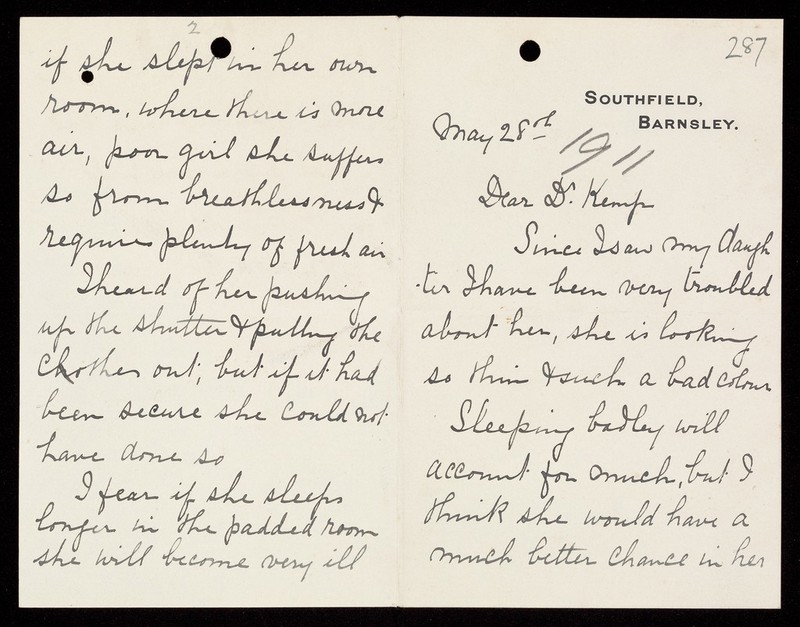 287
SOUTHFIELD,
BARNSLEY.
May 28th 1911
Dear Dr. Kemp
Since I saw my daugh
-ter I have been very troubled
about her, she is looking
so thin & such a bad colour
Sleeping badley will
account for much, but I
think she would have a
much better chance in her
2
if she slept in her own
room, where there is more
air, poor girl she suffers
so from breathlessness &
requires plenty of fresh air
I heard of her pushing
up the shutter & putting the
clothes out, but if it had
been secure she could not
have done so
I fear if she sleeps
longer in the padded room
she will become very ill